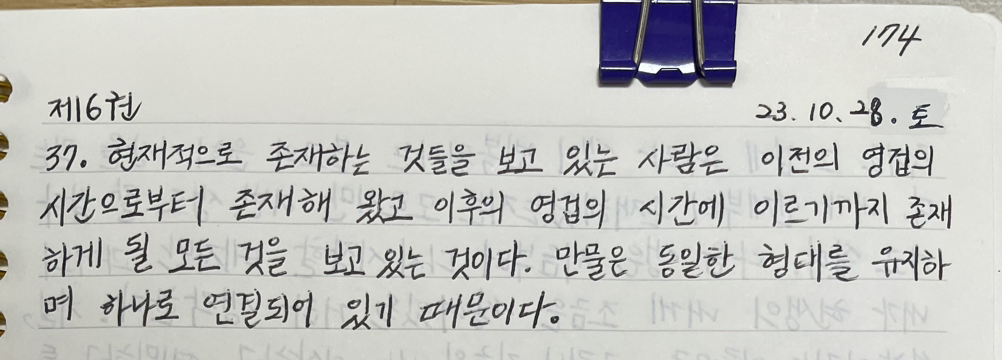 174
제16권 23. 10. 28. 토
37. 현재적으로 존재하는 것들을 보고 있는 사람은 이전의 영겁의
시간으로부터 존재해 왔고 이후의 영겁의 시간에 이르기까지 존재
하게 될 모든 것을 보고 있는 것이다. 만물은 동일한 형태를 유지하
며 하나로 연결되어 있기 때문이다.